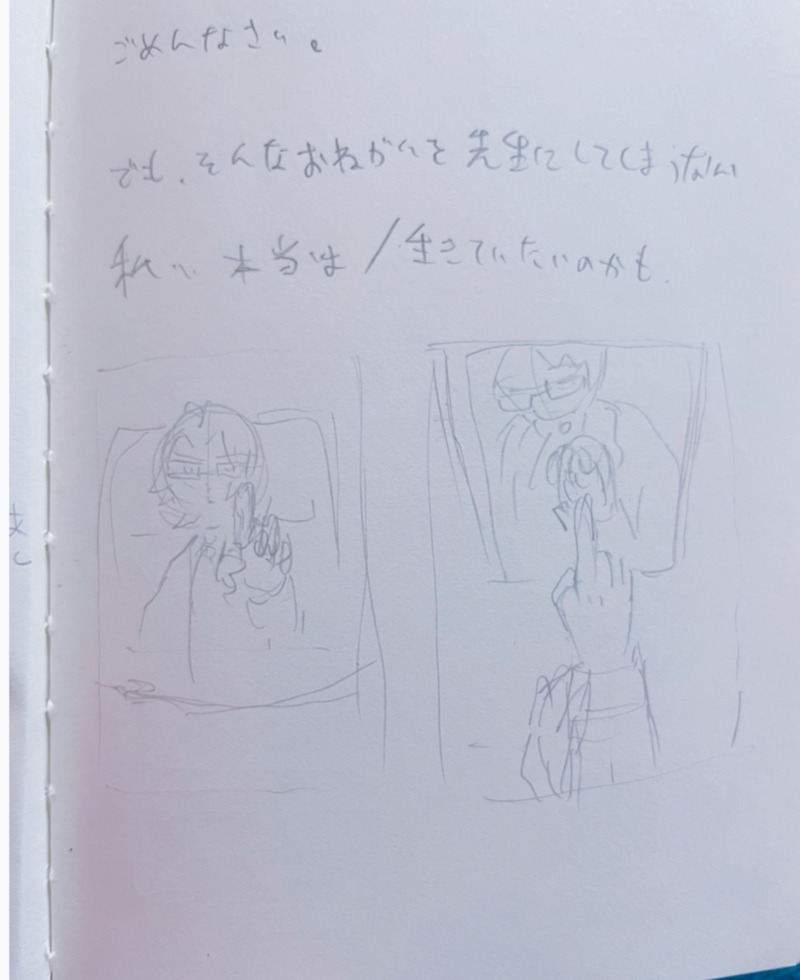 ごめんなさい。
でも、そんなおねがいを先生にしてしまうなんて
私、本当は/生きていたいのかも.